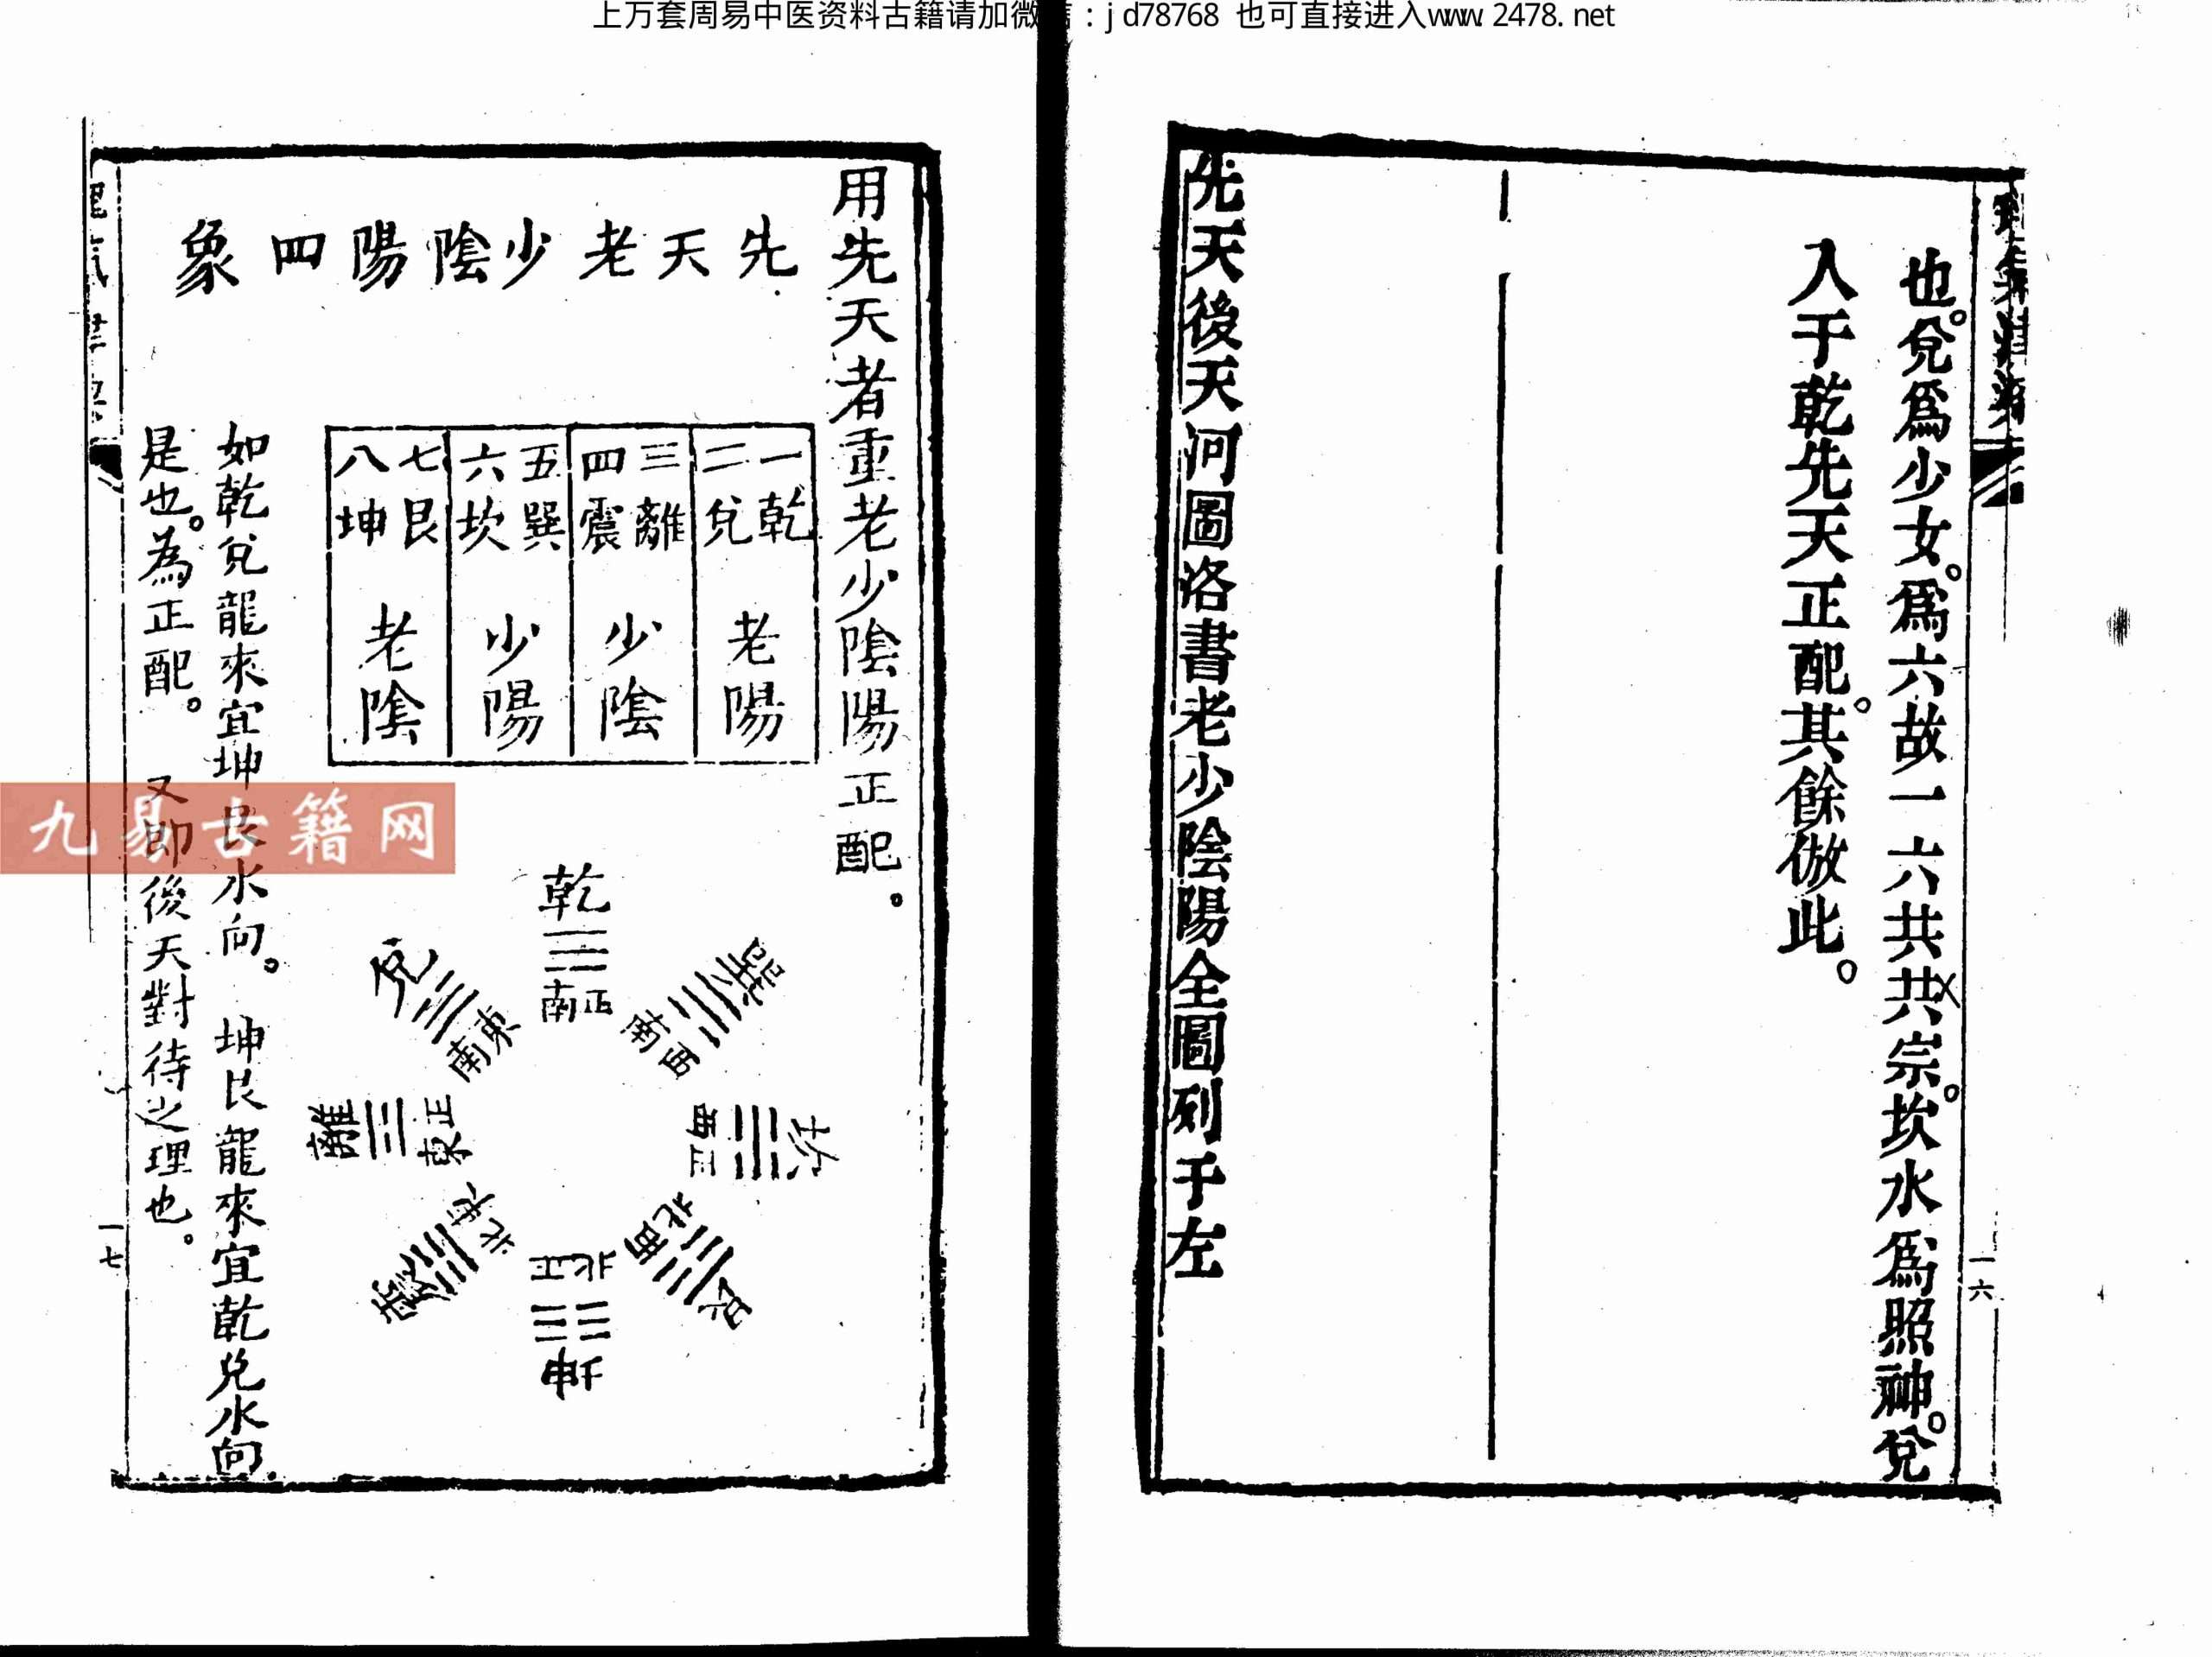 上万套周易中医资料古籍请加微信：jd78768 也可直接进入www.2478.net
也。兌爲少女。爲六故一六共共宗。坎水爲照神。兌
入于乾先天正配。其餘倣此。
先天後天河圖洛書老少陰陽全圖列于左
一六
用先天者重老少陰陽正配。
先天老少陰陽四象
一乾
二兌
老陽
三離
四震
少陰
五巽
六坎
少陽
七艮
八坤
老陰
乾
正南
巽
西南
坎
正西
艮
西北
坤
正北
震
東北
離
正東
兌
東南
如乾兌龍來宜坤艮水向。坤艮龍來宜乾兌水向
是也。為正配。又即後天對待之理也。
一七
九易古籍网